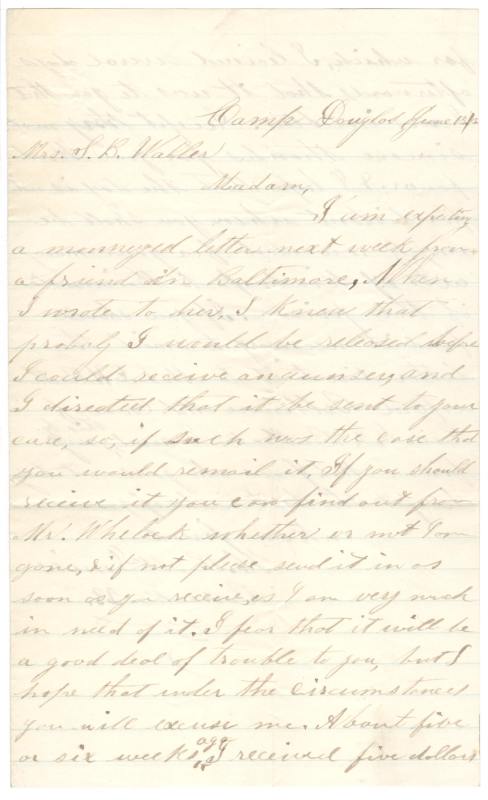 Camp Douglas June 12/
Mrs. S. B. Waller
Madam,
I am expecting
a moneyed letter next week from
a friend in Baltimore, When
I wrote to her, I knew that
proboly I would be released before
I could receive an aunser, and
I directed that it be sent to your
care, so, if such was the case that
you would remail it. If you should
receive it you can find out from
Mr. Whelock whether or not I am
gone, & if not please send it in as
soon as you receive, as I am very much
in need of it. I fear that it will be
a good deal of trouble to you, but I
hope that under the circumstances
you will excuse me. About five
or six weeks ago I received five dollars